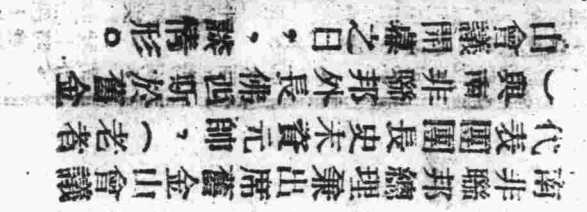 南非聯邦總理兼出席舊金山會議
代表團團長史末資元帥，（老者
）與南非聯邦外長佛西斯於舊金
山會議開幕之日，，談情形。